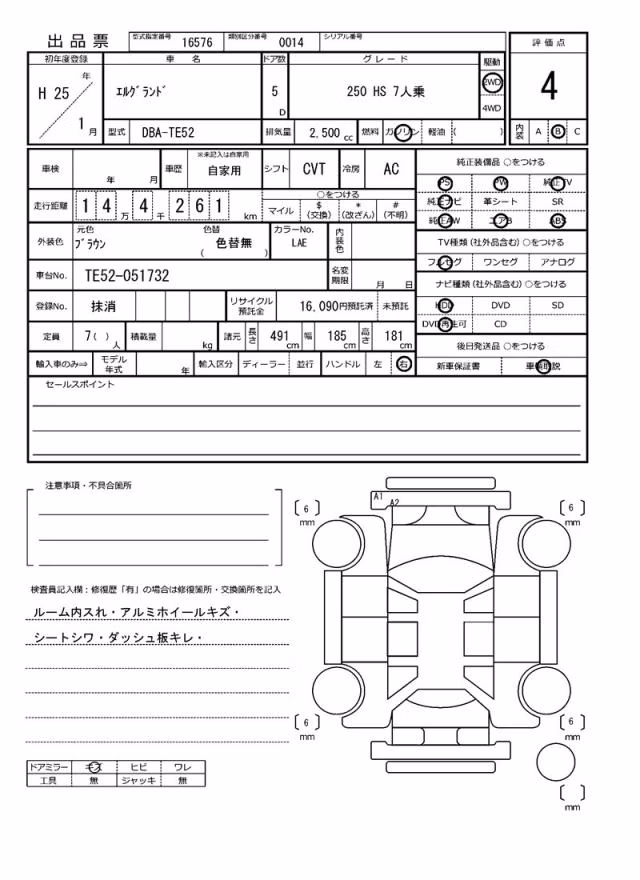 出品票 型式指定番号 16576 類別区分番号 0014 シリアル番号
初年度登録 車 名 ドア数 グレード 駆動 評価点
H 25 年 1 月 エルグランド 5 D 250 HS 7人乗 2WD 4WD 4
型式 DBA-TE52 排気量 2,500 cc 燃料 ガソリン 軽油 ( ) 内装 A B C
車検 年 月 車歴 ※未記入は自家用 自家用 シフト CVT 冷房 AC 純正装備品 ○をつける
PS PW 純正TV
走行距離 14万4千261 km ○をつける 純正ナビ 革シート SR
マイル $(交換) *(改ざん) #(不明) 純正AW エアB ABS
外装色 元色 ブラウン 色替 ( 色替無 ) カラーNo. LAE 内装色 TV種類 (社外品含む) ○をつける
フルセグ ワンセグ アナログ
車台No. TE52-051732 名変期限 月 日 ナビ種類 (社外品含む) ○をつける
登録No. 抹消 リサイクル預託金 16,090円預託済 未預託 HDD DVD SD
DVD再生可 CD
定員 7( ) 人 積載量 kg 諸元 長さ 491 cm 幅 185 cm 高さ 181 cm 後日発送品 ○をつける
輸入車のみ⇒ モデル年式 年 輸入区分 ディーラー 並行 ハンドル 左 右 新車保証書 車輌取説
セールスポイント
注意事項・不具合箇所
A1 A2
6 mm 6 mm
検査員記入欄：修復歴「有」の場合は修復箇所・交換箇所を記入
ルーム内スれ・アルミホイールキズ・
シートシワ・ダッシュ板キレ・
6 mm 6 mm
ドアミラー キズ ヒビ ワレ
工具 無 ジャッキ 無
mm